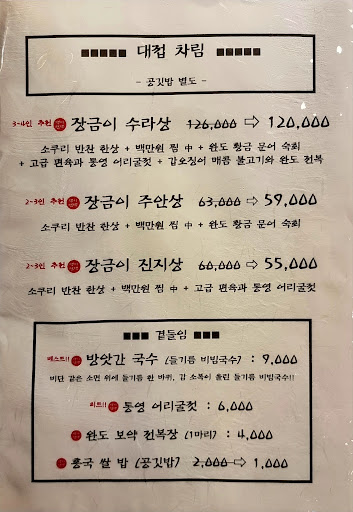 ■■■■■ 대접 차림 ■■■■■
- 공깃밥 별도 -
3-4인 추천 장금이 수라상 126,000 ⇨ 120,000
소쿠리 반찬 한상 + 백만원 찜 中 + 완도 황금 문어 숙회
+ 고급 편육과 통영 어리굴젓 + 갑오징어 매콤 불고기와 완도 전복
2-3인 추천 장금이 주안상 63,000 ⇨ 59,000
소쿠리 반찬 한상 + 백만원 찜 中 + 완도 황금 문어 숙회
2-3인 추천 장금이 진지상 60,000 ⇨ 55,000
소쿠리 반찬 한상 + 백만원 찜 中 + 고급 편육과 통영 어리굴젓
■■■ 곁들임 ■■■
베스트!! 방앗간 국수 (들기름 비빔국수) : 9,000
비단 같은 소면 위에 들기름 휜 바퀴, 김 소복이 올린 들기름 비빔국수!!
히트!! 통영 어리굴젓 : 6,000
완도 보약 전복장 (1마리) : 4,000
홍국 쌀 밥 (공깃밥) 2,000 ⇨ 1,000